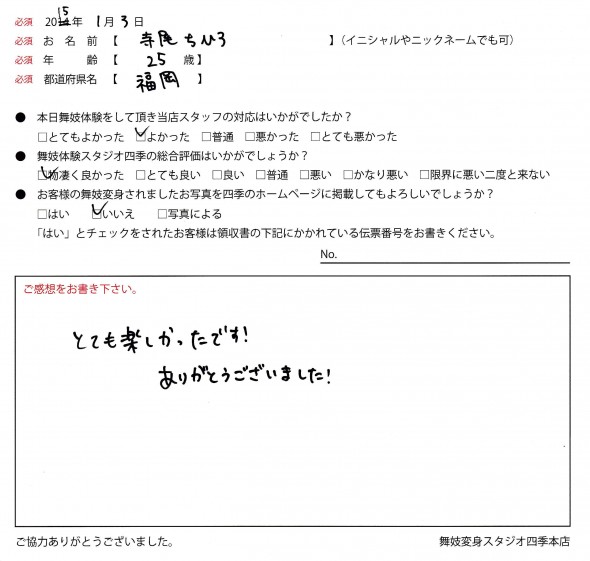 必須 2015年 1月3日
必須 お名前【 寺尾ちひろ 】(イニシャルやニックネームでも可)
必須 年齢【 25 歳】
必須 都道府県名【 福岡 】
● 本日舞妓体験をして頂き当店スタッフの対応はいかがでしたか?
□とてもよかった ☑よかった □普通 □悪かった □とても悪かった
● 舞妓体験スタジオ四季の総合評価はいかがでしょうか?
☑物凄く良かった □とても良い □良い □普通 □悪い □かなり悪い □限界に悪い二度と来ない
● お客様の舞妓変身されましたお写真を四季のホームページに掲載してもよろしいでしょうか?
□はい ☑いいえ □写真による
「はい」とチェックをされたお客様は領収書の下記にかかれている伝票番号をお書きください。
No.
ご感想をお書き下さい。
とても楽しかったです!
ありがとうございました!
ご協力ありがとうございました。 舞妓変身スタジオ四季本店